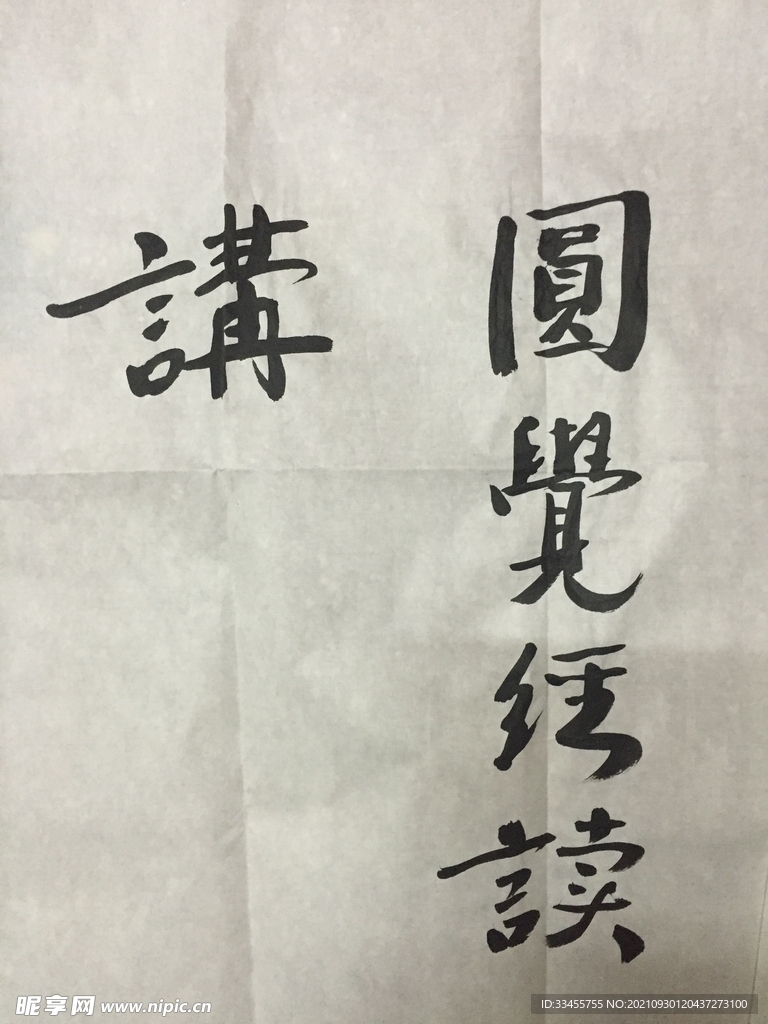 圓覺經讀
講
昵享网 www.nipic.cn
ID:33455755 NO:20210930120437273100